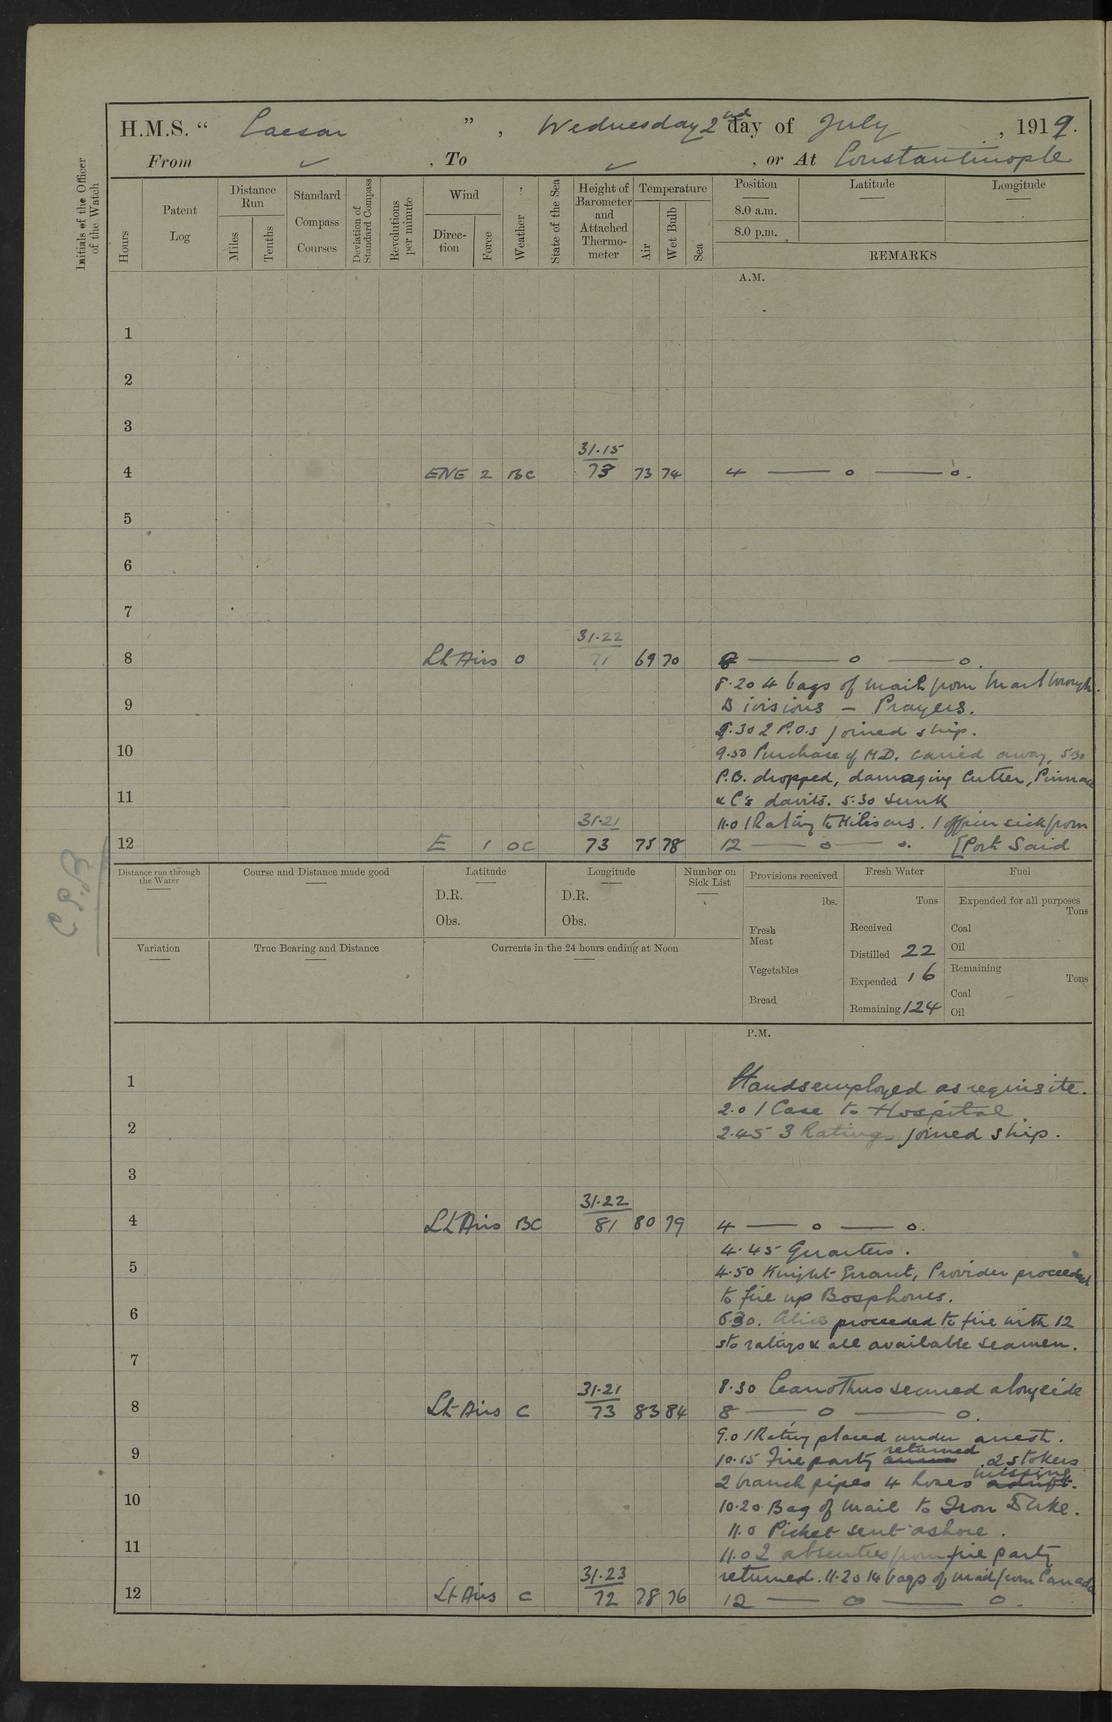 H.M.S. “ Caesar ” , Wednesday 2nd day of July , 1919.
From ✓ , To ✓ , or At Constantinople
Initials of the Officer of the Watch
Hours
Patent Log
Distance Run
Miles
Tenths
Standard Compass Courses
Deviation of Standard Compass
Revolutions per minute
Wind
Direction
Force
Weather
State of the Sea
Height of Barometer and Attached Thermometer
Temperature
Air
Wet Bulb
Sea
Position Latitude Longitude
8.0 a.m.
8.0 p.m.
REMARKS
A.M.
1
2
3
31.15
4 ENE 2 BC 73 73 74 4 — o — o.
5
6
7
31.22
8 Lt Airs O 71 69 70 8 — o — o.
8.20 4 bags of mail from Marlborough.
9 Divisions – Prayers.
9.30 2 P.O.s joined ship.
10 9.50 Purchase of MD. carried away, 5.30
P.B. dropped, damaging Cutter, Pinnace
11 & C's davits. 5.30 sunk
31.21 11.0 1 Rating to . 1 sick from
12 E 1 OC 73 75 78 12 — o — o. [Port Said
C.P.B
Distance run through the Water
Course and Distance made good
Latitude
D.R.
Obs.
Longitude
D.R.
Obs.
Number on Sick List
Provisions received
lbs.
Fresh Meat
Vegetables
Bread
Fresh Water
Tons
Received
Distilled 22
Expended 16
Remaining 124
Fuel
Expended for all purposes
Tons
Coal
Oil
Remaining
Tons
Coal
Oil
Variation
True Bearing and Distance
Currents in the 24 hours ending at Noon
P.M.
1 Hands employed as requisite.
2.0 1 Case to Hospital.
2 2.45 3 Ratings joined ship.
3
31.22
4 Lt Airs BC 81 80 79 4 — o — o.
4.45 Quarters.
5 4.50 Knight Errant, Provider proceeded
to fire up Bosphorus.
6 6.30. Alice proceeded to fire with 12
sto ratings & all available seamen.
7
31.21 8.30 Ceanothus secured alongside
8 Lt Airs C 73 83 84 8 — o — o.
9.0 1 Rating placed under arrest.
9 10.15 Fire party returned. 2 stokers
2 branch pipes 4 hoses missing adrift.
10 10.20 Bag of mail to Iron Duke.
11.0 Picket sent ashore.
11 11.0 2 absentees from fire party
31.23 returned. 11.20 14 bags of mail from Canada
12 Lt Airs C 72 78 76 12 — o — o.